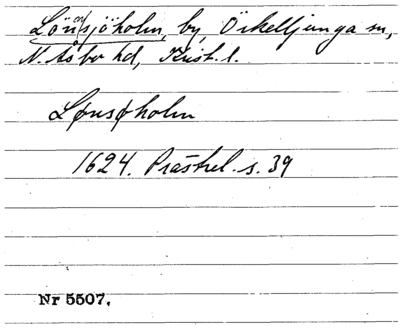 Lönsjöholm, by, Örkelljunga sn,
N. Åsbo hd, Krist. l.
Lønsøholm
1624. Prästrel. s. 39
Nr 5507.